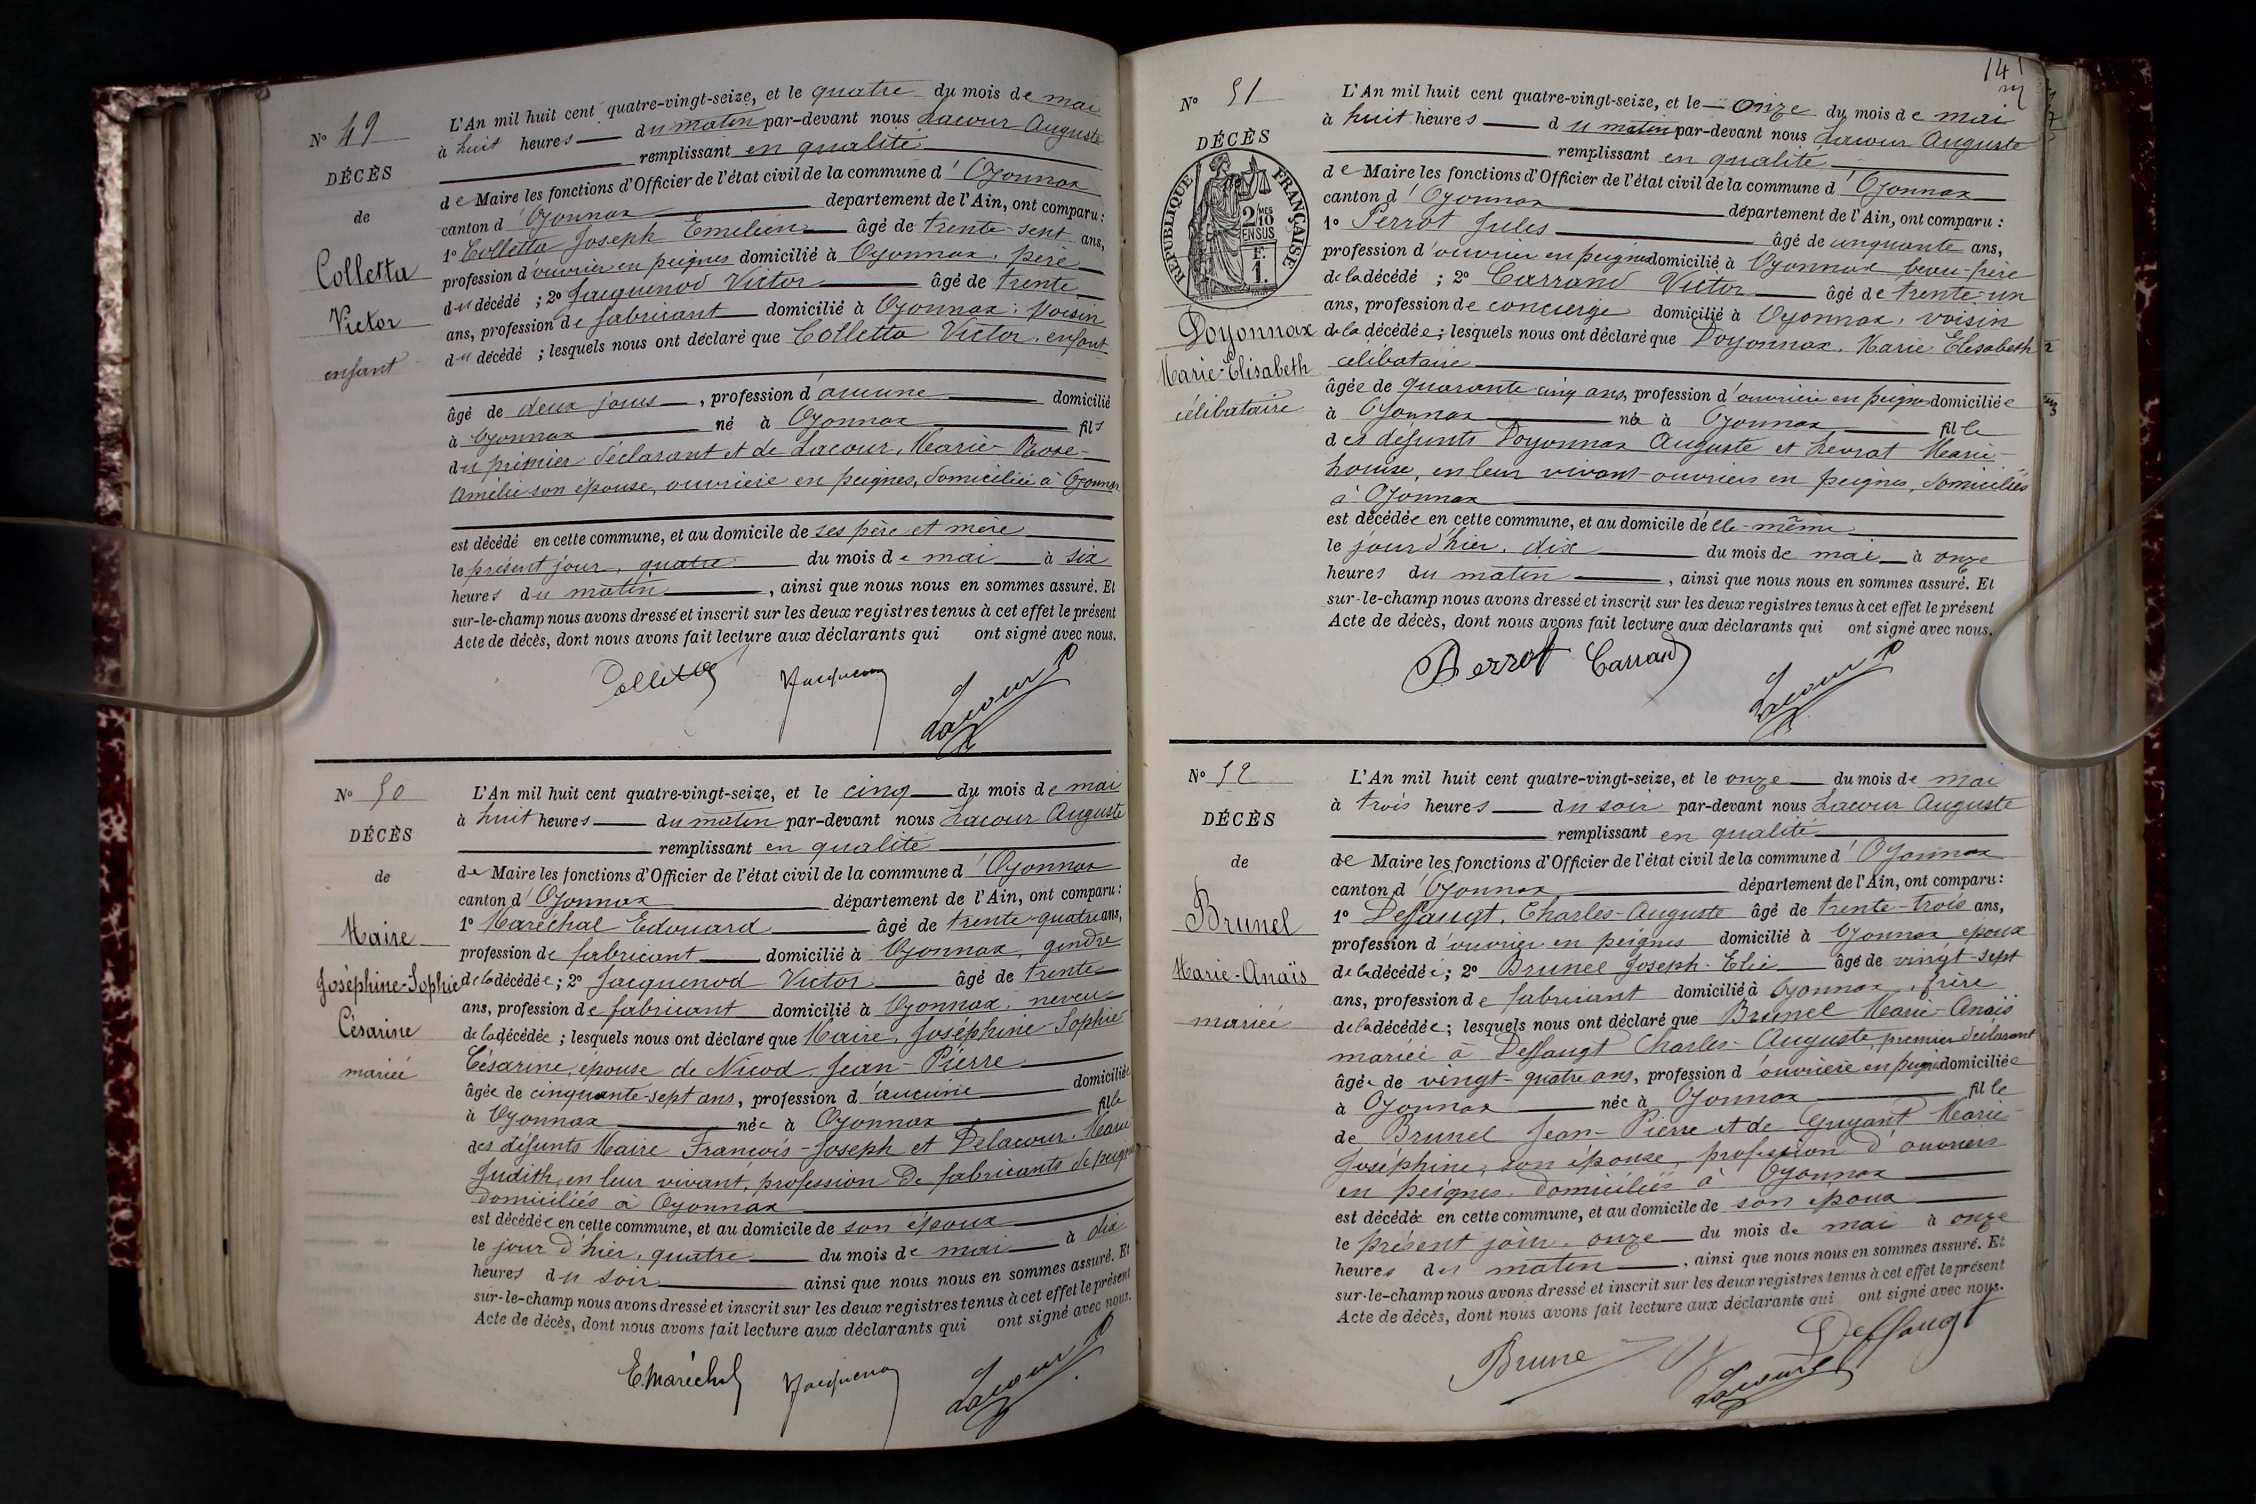 N° 49
DÉCÈS
de
Colletta
Victor
enfant
L'An mil huit cent quatre-vingt-seize, et le quatre du mois de mai
à huit heures du matin par-devant nous Lacour Auguste
remplissant en qualité
de Maire les fonctions d'Officier de l'état civil de la commune d'Oyonnax
canton d'Oyonnax département de l'Ain, ont comparu :
1° Colletta Joseph Emelien âgé de trente-sept ans,
profession d'ouvrier en peignes domicilié à Oyonnax, père
du décédé ; 2° Jacquenod Victor âgé de trente
ans, profession de fabricant domicilié à Oyonnax, voisin
du décédé ; lesquels nous ont déclaré que Colletta Victor, enfant
âgé de deux jours, profession d'aucune domicilié
à Oyonnax né à Oyonnax fils
du premier déclarant et de Lacour, Marie-Rose-
Amélie son épouse, ouvrière en peignes, domiciliée à Oyonnax
est décédé en cette commune, et au domicile de ses père et mère
le présent jour, quatre du mois de mai à six
heures du matin, ainsi que nous nous en sommes assuré. Et
sur-le-champ nous avons dressé et inscrit sur les deux registres tenus à cet effet le présent
Acte de décès, dont nous avons fait lecture aux déclarants qui ont signé avec nous.
Colletta Jacquenod Lacour
N° 50
DÉCÈS
de
Maire
Joséphine-Sophie
Césarine
mariée
L'An mil huit cent quatre-vingt-seize, et le cinq du mois de mai
à huit heures du matin par-devant nous Lacour Auguste
remplissant en qualité
de Maire les fonctions d'Officier de l'état civil de la commune d'Oyonnax
canton d'Oyonnax département de l'Ain, ont comparu :
1° Maréchal Edouard âgé de trente-quatre ans,
profession de fabricant domicilié à Oyonnax, gendre
de la décédée ; 2° Jacquenod Victor âgé de trente
ans, profession de fabricant domicilié à Oyonnax, neveu
de la décédée ; lesquels nous ont déclaré que Maire, Joséphine-Sophie
Césarine, épouse de Nicod, Jean-Pierre
âgée de cinquante-sept ans, profession d'aucune domiciliée
à Oyonnax née à Oyonnax fille
des défunts Maire François-Joseph et Delacour, Marie
Judith, en leur vivant, profession de fabricants de peignes
domiciliés à Oyonnax
est décédée en cette commune, et au domicile de son époux
le jour d'hier, quatre du mois de mai à dix
heures du soir ainsi que nous nous en sommes assuré. Et
sur-le-champ nous avons dressé et inscrit sur les deux registres tenus à cet effet le présent
Acte de décès, dont nous avons fait lecture aux déclarants qui ont signé avec nous.
E. Maréchal Jacquenod Lacour
141
N° 51
DÉCÈS
RÉPUBLIQUE FRANÇAISE
2 MES
10
EN SUS
F.
1.
Doyonnax
Marie-Elisabeth
célibataire
L'An mil huit cent quatre-vingt-seize, et le onze du mois de mai
à huit heures du matin par-devant nous Lacour Auguste
remplissant en qualité
de Maire les fonctions d'Officier de l'état civil de la commune d'Oyonnax
canton d'Oyonnax département de l'Ain, ont comparu :
1° Perrot Jules âgé de cinquante ans,
profession d'ouvrier en peignes domicilié à Oyonnax beau-frère
de la décédé ; 2° Carrand Victor âgé de trente-un
ans, profession de concierge domicilié à Oyonnax, voisin
de la décédée ; lesquels nous ont déclaré que Doyonnax, Marie Elisabeth
célibataire
âgée de quarante cinq ans, profession d'ouvrière en peignes domiciliée
à Oyonnax née à Oyonnax fille
des défunts Doyonnax Auguste et Levrat Marie-
Louise, en leur vivant ouvriers en peignes, domiciliés
à Oyonnax
est décédée en cette commune, et au domicile d'elle-même
le jour d'hier, dix du mois de mai à onze
heures du matin, ainsi que nous nous en sommes assuré. Et
sur-le-champ nous avons dressé et inscrit sur les deux registres tenus à cet effet le présent
Acte de décès, dont nous avons fait lecture aux déclarants qui ont signé avec nous.
Perrot Carrand Lacour
N° 52
DÉCÈS
de
Brunel
Marie-Anaïs
mariée
L'An mil huit cent quatre-vingt-seize, et le onze du mois de mai
à trois heures du soir par-devant nous Lacour Auguste
remplissant en qualité
de Maire les fonctions d'Officier de l'état civil de la commune d'Oyonnax
canton d'Oyonnax département de l'Ain, ont comparu :
1° Deffaugt, Charles-Auguste âgé de trente-trois ans,
profession d'ouvrier en peignes domicilié à Oyonnax époux
de la décédée ; 2° Brunel Joseph-Elie âgé de vingt-sept
ans, profession de fabricant domicilié à Oyonnax, frère
de la décédée ; lesquels nous ont déclaré que Brunel Marie-Anaïs
mariée à Deffaugt Charles-Auguste, premier déclarant
âgée de vingt-quatre ans, profession d'ouvrière en peignes domiciliée
à Oyonnax née à Oyonnax fille
de Brunel Jean-Pierre et de Guyant Marie-
Joséphine, son épouse, profession d'ouvriers
en peignes, domiciliés à Oyonnax
est décédée en cette commune, et au domicile de son époux
le présent jour, onze du mois de mai à onze
heures du matin, ainsi que nous nous en sommes assuré. Et
sur-le-champ nous avons dressé et inscrit sur les deux registres tenus à cet effet le présent
Acte de décès, dont nous avons fait lecture aux déclarants qui ont signé avec nous.
Brunel Lacour Deffaugt